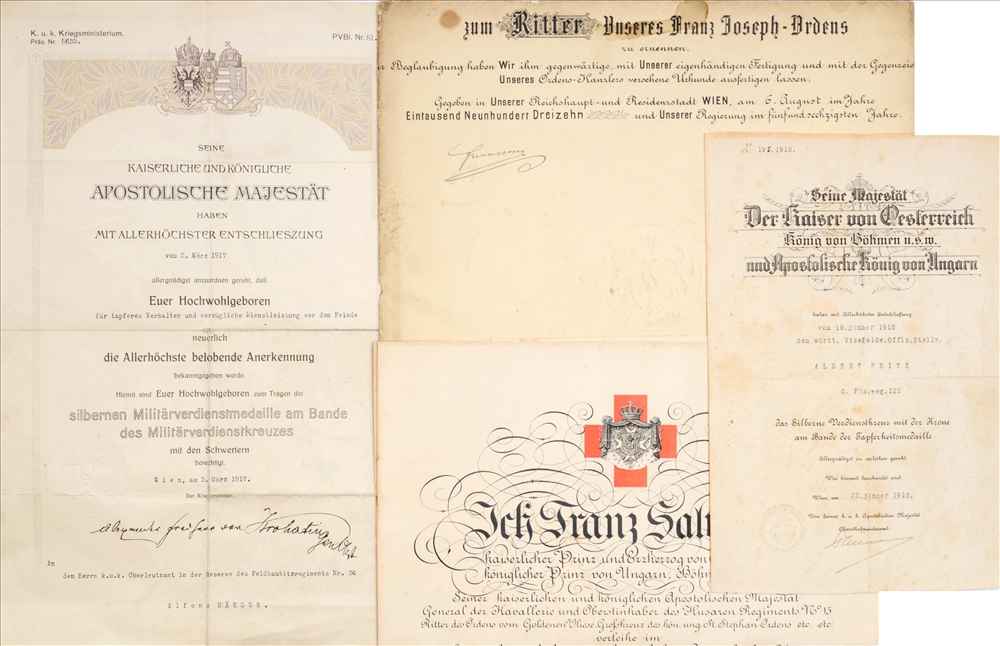 K. u. k. Kriegsministerium.
Präs. Nr. 5633.
PVBl. Nr. 51.
SEINE
KAISERLICHE UND KÖNIGLICHE
APOSTOLISCHE MAJESTÄT
HABEN
MIT ALLERHÖCHSTER ENTSCHLIESZUNG
vom 2. März 1917
allergnädigst anzuordnen geruht, daß
Euer Hochwohlgeboren
für tapferes Verhalten und vorzügliche Dienstleistung vor dem Feinde
neuerlich
die Allerhöchste belobende Anerkennung
bekanntgegeben werde.
Hiemit sind Euer Hochwohlgeboren zum Tragen der
silbernen Militärverdienstmedaille am Bande
des Militärverdienstkreuzes
mit den Schwertern
berechtigt.
Wien, am 3. März 1917.
Der Kriegsminister:
An
den Herrn k.u.k. Oberleutnant in der Reserve des Feldhaubitzregiments Nr. 24
Alfons HÄUSER.
zum Ritter Unseres Franz Joseph-Ordens
zu ernennen.
Beglaubigung haben Wir ihm gegenwärtige, mit Unserer eigenhändigen Fertigung und mit der Gegenzei
Unseres Ordens-Kanzlers versehene Urkunde ausfertigen lassen.
Gegeben in Unserer Reichshaupt- und Residenzstadt WIEN, am 6. August im Jahre
Eintausend Neunhundert Dreizehn und Unserer Regierung im fünfundsechzigsten Jahre.
195.1918.
Seine Majestät
Der Kaiser von Oesterreich
König von Böhmen u.s.w.
und Apostolische König von Ungarn
haben mit Allerhöchster Entschließung
vom 16.Jänner 1918
dem württ. Vizefeldw.Offiz.Stellv.
ALBERT FRITZ
d. Füs.Reg.122
das Silberne Verdienstkreuz mit der Krone
am Bande der Tapferkeitsmedaille
Allergnädigst zu verleihen geruht.
Was hiermit beurkundet wird.
Wien, am 22.Jänner 1918.
Von Seiner k. u. k. Apostolischen Majestät
Obersthofmeisteramt.
Ich Franz Sal
kaiserlicher Prinz und Erzherzog von
königlicher Prinz von Ungarn, Böhm
Seiner kaiserlichen und königlichen Apostolischen Majestät
General der Kavallerie und Oberstinhaber des Husaren Regiments No 15
Ritter des Ordens vom Goldenen Vliese, Großkreuz des kön. ung. St. Stephan Ordens etc. etc.
verleihe im